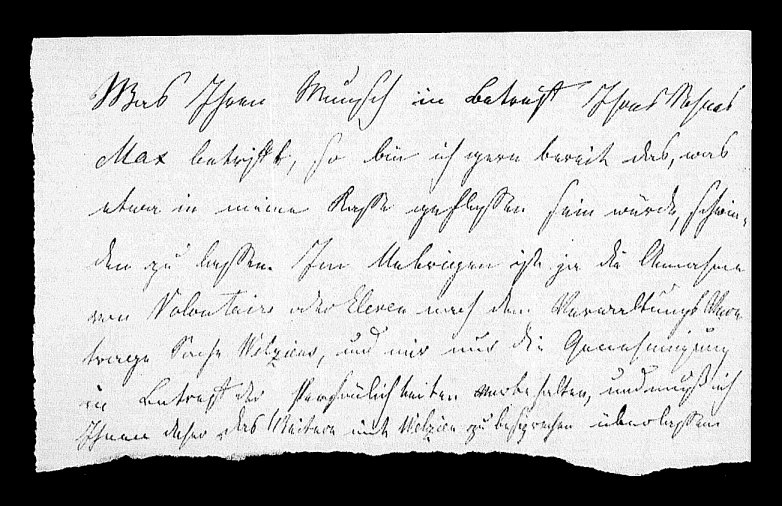 Was Ihren Wunsch in Betreff Ihres Sohnes
Max betrifft, so bin ich gern bereit das, was
etwa in meine Kasse geflossen sein würde, schwin-
den zu lassen. Im Uebrigen ist ja die Annahme
von Volontairs oder Eleven nach dem Verwaltungs Ver
trage Sache Welziens, und mir nur die Genehmigung
in Betreff der Persönlichkeiten vorbehalten, und muß ich
Ihnen daher das Weitere mit Welzien zu besprechen überlassen.